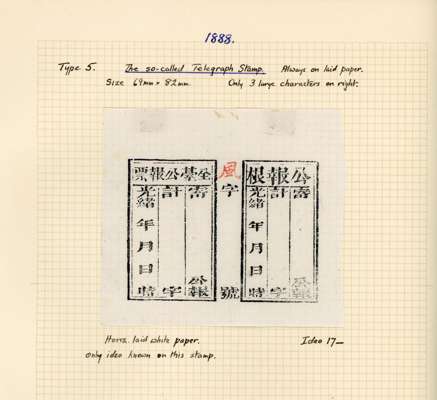 1888.
Type 5. The so-called Telegraph Stamp. Always on laid paper.
Size 69mm × 82mm. Only 3 large characters on right.
公報根
寄 公報
計 字
光緒 年 月 日 時
風字 號
公報票
寄 公報
計 字
光緒 年 月 日 時
Horiz. laid white paper.
Ideo 17—
Only ideo known on this stamp.